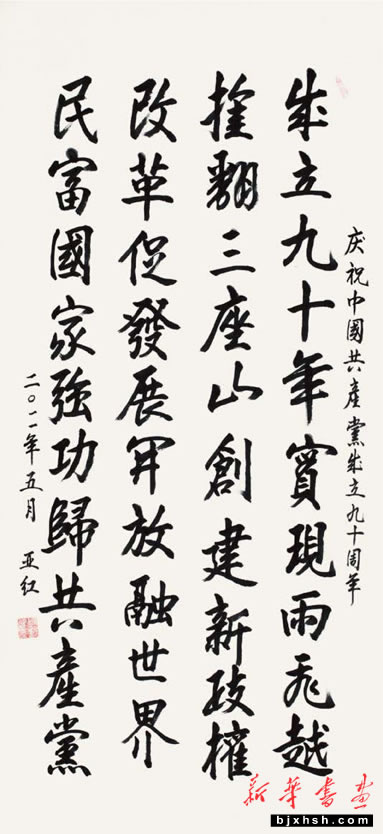 庆祝中國共產黨成立九十周年
成立九十年實現兩飛越
推翻三座山創建新政權
改革促發展開放融世界
民富國家強功歸共產黨
二〇一一年五月 亚红
新華書畫
bjxhsh.com